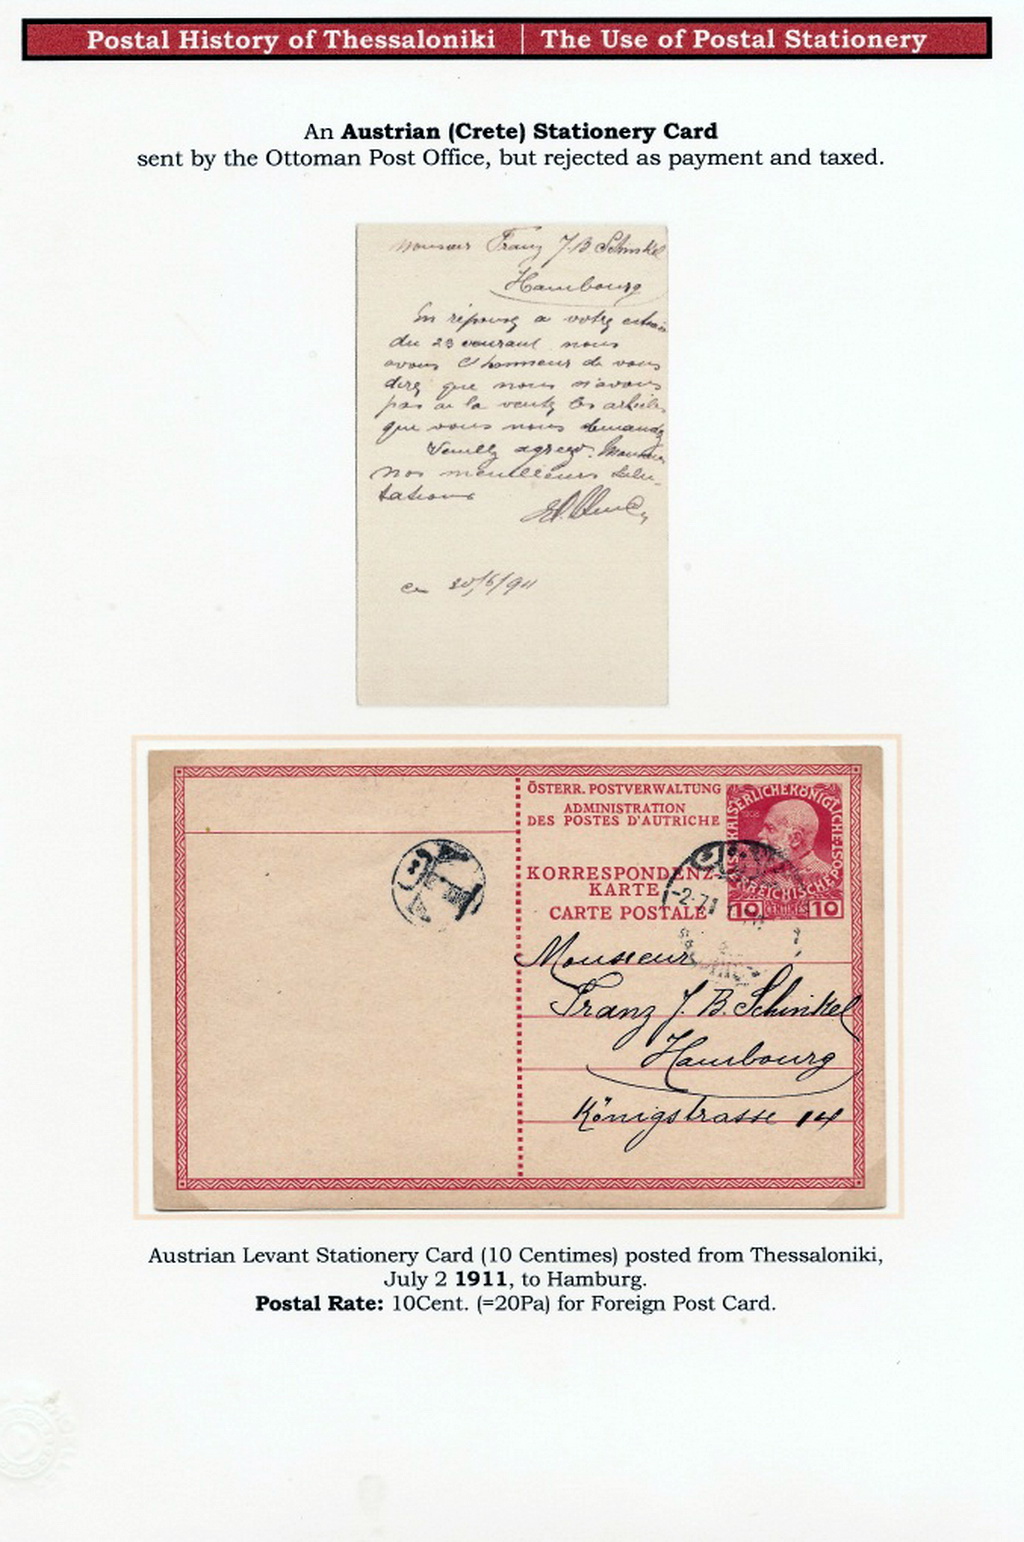 Postal History of Thessaloniki | The Use of Postal Stationery
An Austrian (Crete) Stationery Card
sent by the Ottoman Post Office, but rejected as payment and taxed.
Monsieur Franz J. B Schinkel
Hambourg
En réponse a votre
du 23 courant nous
avons l'honneur de vous
dire que nous n'avons
pas a la vente les articles
que vous nous demandez
Veuillez agreer. Monsieur
nos meilleures salu-
tations
ce 30/6/911
ÖSTERR. POSTVERWALTUNG
ADMINISTRATION
DES POSTES D'AUTRICHE
KAISERLICHEKÖNIGLICHE
ÖSTERREICHISCHEPOST
1908
10 CENTIMES 10
KORRESPONDENZ-
KARTE
CARTE POSTALE
T
-2-7-11
Monsieur
Franz J. B. Schinkel
Hambourg
Königstrasse 14
Austrian Levant Stationery Card (10 Centimes) posted from Thessaloniki,
July 2 1911, to Hamburg.
Postal Rate: 10Cent. (=20Pa) for Foreign Post Card.